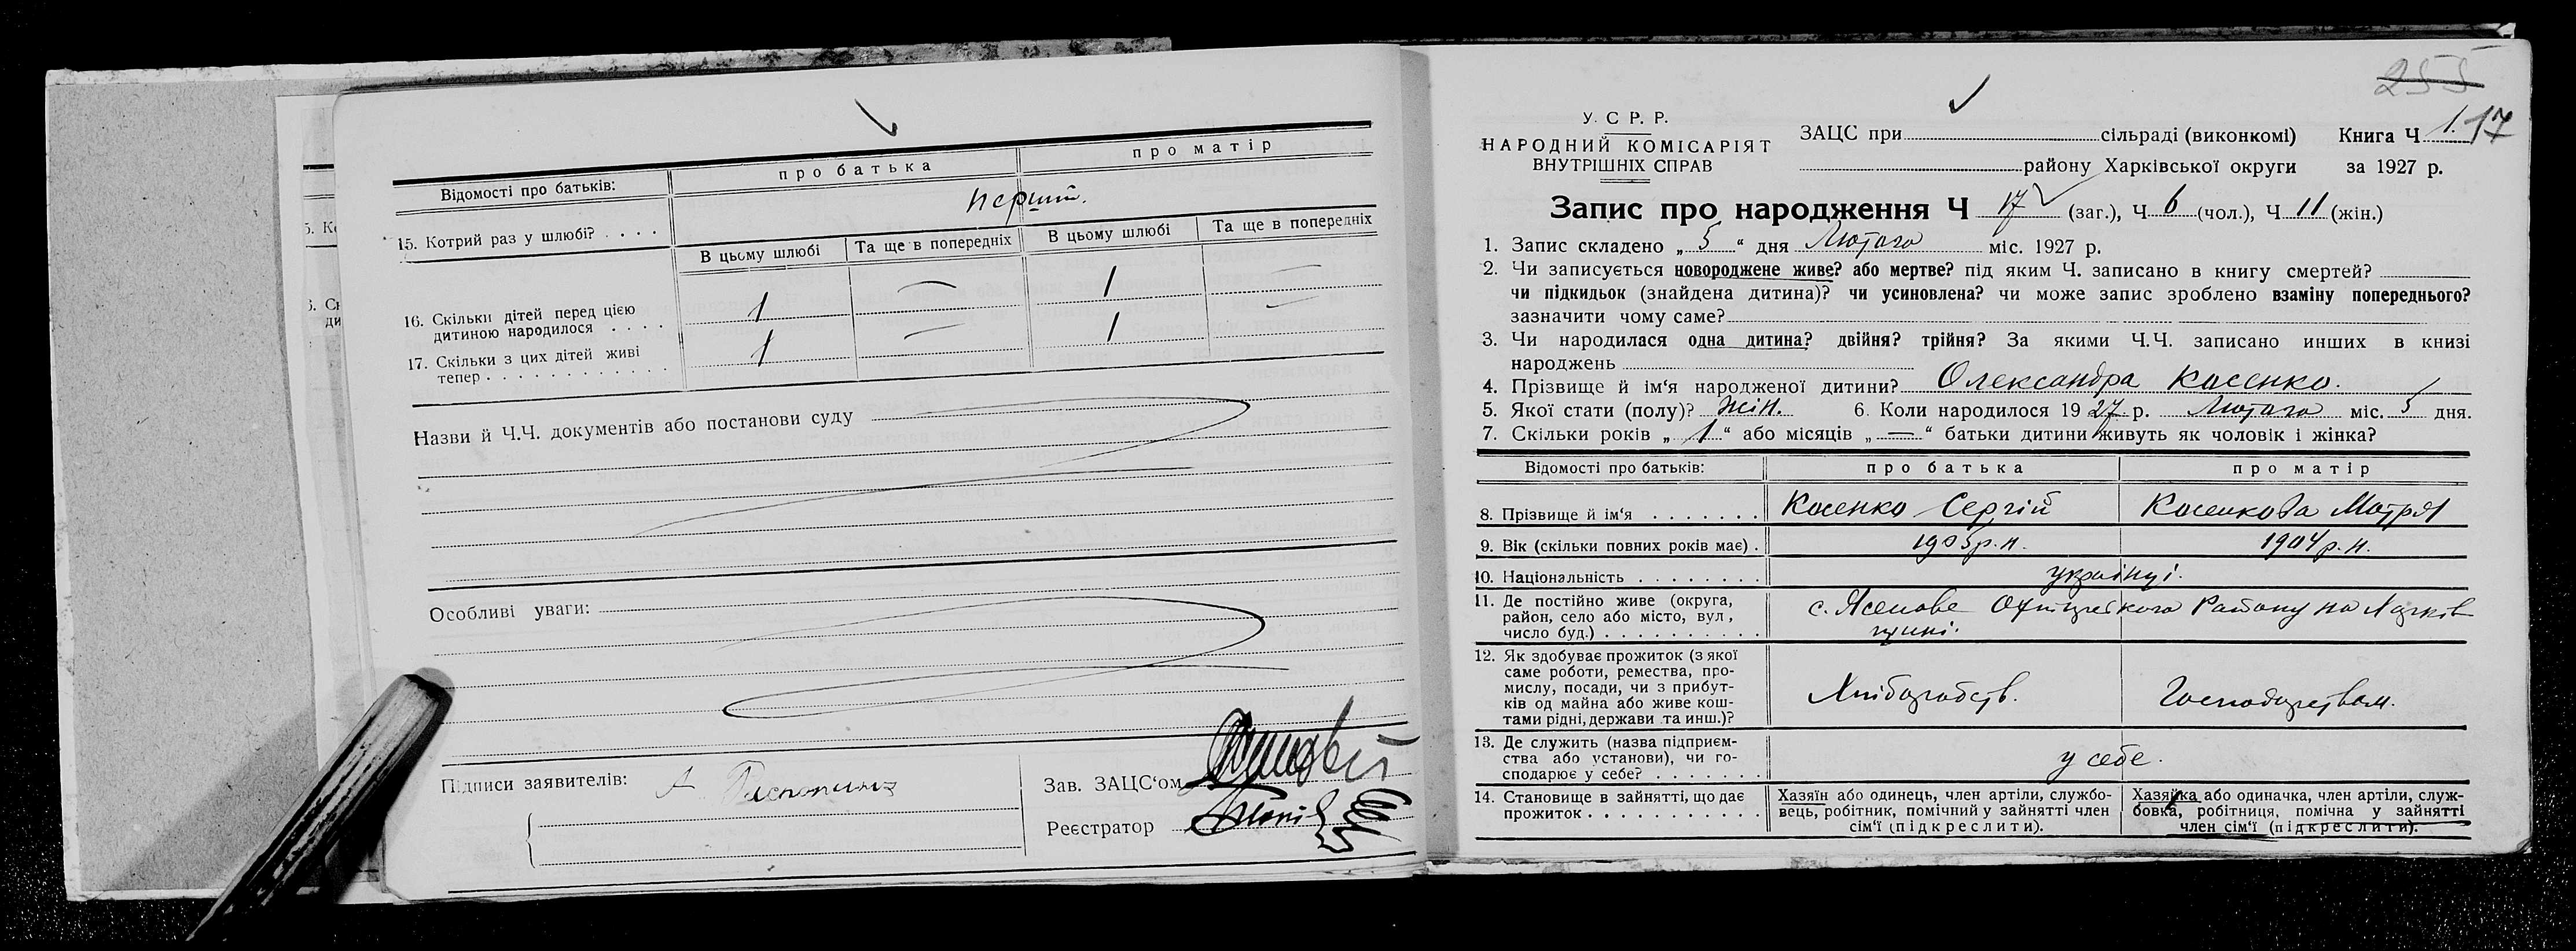 Відомості про батьків:
про батька
про матір
15. Котрий раз у шлюбі? . . . .
перший.
В цьому шлюбі
Та ще в попередніх
В цьому шлюбі
Та ще в попередніх
16. Скільки дітей перед цією
дитиною народилося . . . .
1 — 1 —
17. Скільки з цих дітей живі
тепер . . . . . . . . . . . .
1 — 1 —
Назви й Ч.Ч. документів або постанови суду
Особливі уваги:
Підписи заявителів:
Зав. ЗАЦС'ом
Реєстратор
255
У. С. Р. Р.
НАРОДНИЙ КОМІСАРІЯТ
ВНУТРІШНІХ СПРАВ
ЗАЦС при сільраді (виконкомі)
району Харківської округи
Книга Ч 1. 17
за 1927 р.
Запис про народження Ч 17 (заг.), Ч 6 (чол.), Ч 11 (жін.)
1. Запис складено „ 5 “ дня Лютого міс. 1927 р.
2. Чи записується новороджене живе? або мертве? під яким Ч. записано в книгу смертей?
чи підкидьок (знайдена дитина)? чи усиновлена? чи може запис зроблено взаміну попереднього?
зазначити чому саме?
3. Чи народилася одна дитина? двійня? трійня? За якими Ч.Ч. записано инших в книзі
народжень
4. Прізвище й ім'я народженої дитини? Олександра Косенко.
5. Якої стати (полу)? жін. 6. Коли народилося 1927 р. Лютого міс. 5 дня.
7. Скільки років „ 1 “ або місяців „ — “ батьки дитини живуть як чоловік і жінка?
Відомості про батьків:
про батька
про матір
8. Прізвище й ім'я . . . . . . .
Косенко Сергій
Косенкова Мотря
9. Вік (скільки повних років має) .
1905 р.н.
1904 р.н.
10. Національність . . . . . . . .
українці.
11. Де постійно живе (округа,
район, село або місто, вул.,
число буд.) . . . . . . . . . . .
с. Ясенове Району на Харків
щині.
12. Як здобуває прожиток (з якої
саме роботи, ремества, про-
мислу, посади, чи з прибут-
ків од майна або живе кош-
тами рідні, держави та инш.)?
Хліборобств.
Господарством.
13. Де служить (назва підприєм-
ства або установи), чи го-
сподарює у себе? . . . . . . .
у себе.
14. Становище в зайнятті, що дає
прожиток . . . . . . . . . . . .
Хазяїн або одинець, член артіли, службо-
вець, робітник, помічний у зайнятті член
сім'ї (підкреслити).
Хазяйка або одиначка, член артіли, служ-
бовка, робітниця, помічна у зайнятті
член сім'ї (підкреслити).